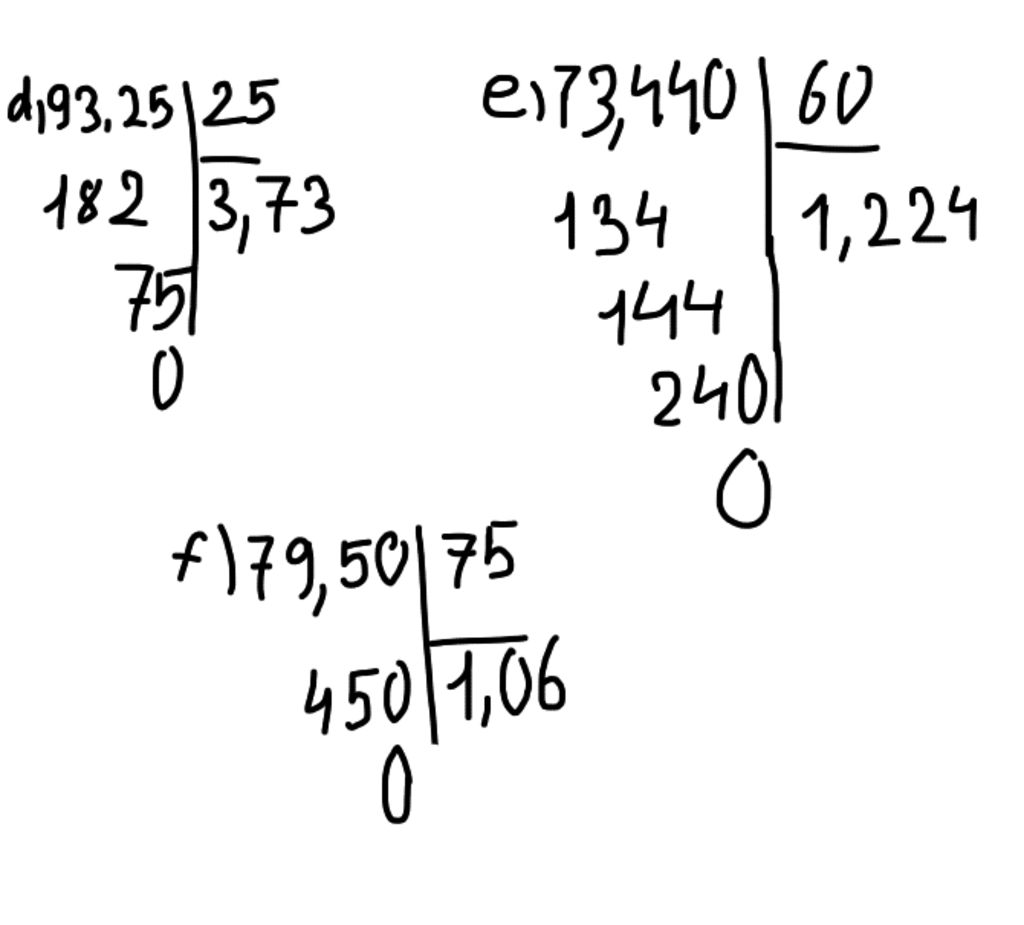 d,93,25 25
182 3,73
75
0
e,73,440 60
134 1,224
144
240
0
f)79,50 75
450 1,06
0